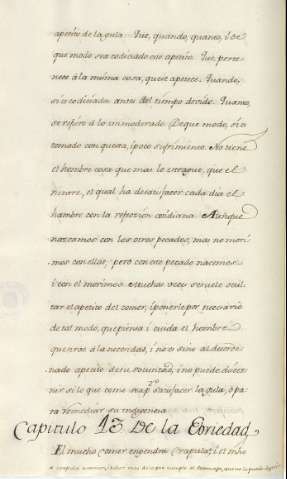 apetito de la gula. Que, quando, quanto, i de
que modo sea codiciado este apetito. Que, perte-
nece a la misma cosa, que se apetece. Quando,
si es codiciada antes del tiempo devido. Quanto,
se refiere a lo inmoderado. De que modo, si es
tomado con quexa, i poco sufrimiento. No tiene
el hombre cosa que mas lo que el
el qual ha de satisfacer cada dia el
hambre con la refeccion cotidiana. Aunque
nazcamos con los otros pecados, mas no mori-
mos con ellos; pero con este pecado nacemos
i con el morimos. Muchas veces se suele ocul-
tar el apetito del comer, i ponerle por necesario
de tal modo, que piensa i cuida el hombre
que sirve a la necesidad, i no es sino al desorde-
nado apetito de su voluntad, i no puede dicer-
nir si lo que come sea p.o satisfacer la gula, o pa
ra remediar su indigencia
Capitulo 13 De la Ebriedad
El mucho comer engendra Crapula, i el